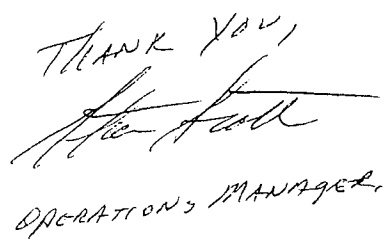 THANK YOU,
OPERATIONS MANAGER.